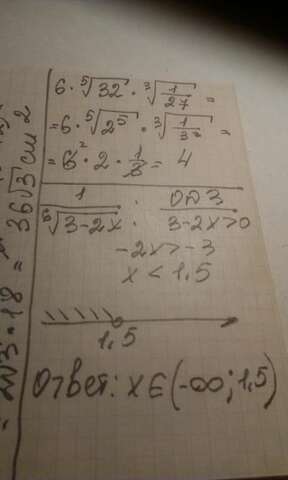 6 · ⁵√32 · ³√(1/27) =
= 6 · ⁵√(2⁵) · ³√(1/3³) =
= 6² · 2 · 1/3 = 4
1/⁶√(3-2x) : ОДЗ
3-2x>0
-2x>-3
x < 1,5
1,5
Ответ: x∈(-∞; 1,5)
= 36√3 см 2